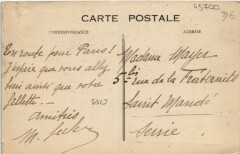 45700
CARTE POSTALE
CORRESPONDANCE
ADRESSE
En route pour Paris!
J'espère que vous allez
bien ainsi que votre
fillette...
Amitiés
Madame Mayer
5 bis rue de la Fraternité
Saint Mandé
Seine